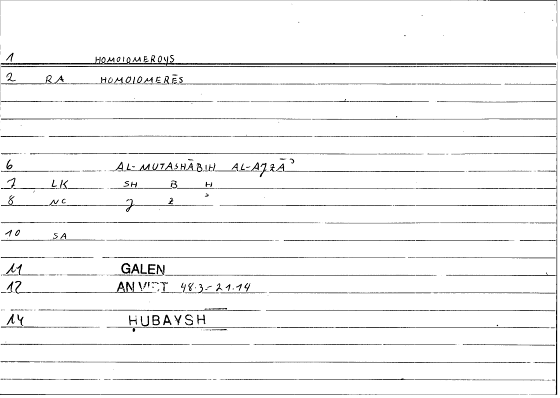 1 HOMOIOMEROȲS
2 RA HOMOIOMERĒS
6 AL-MUTASHĀBIH AL-AJZĀʾ
7 LK SH B H
8 NC J Z ʾ
10 SA
11 GALEN
12 AN VIRT 48.3-21.14
14 ḤUBAYSH